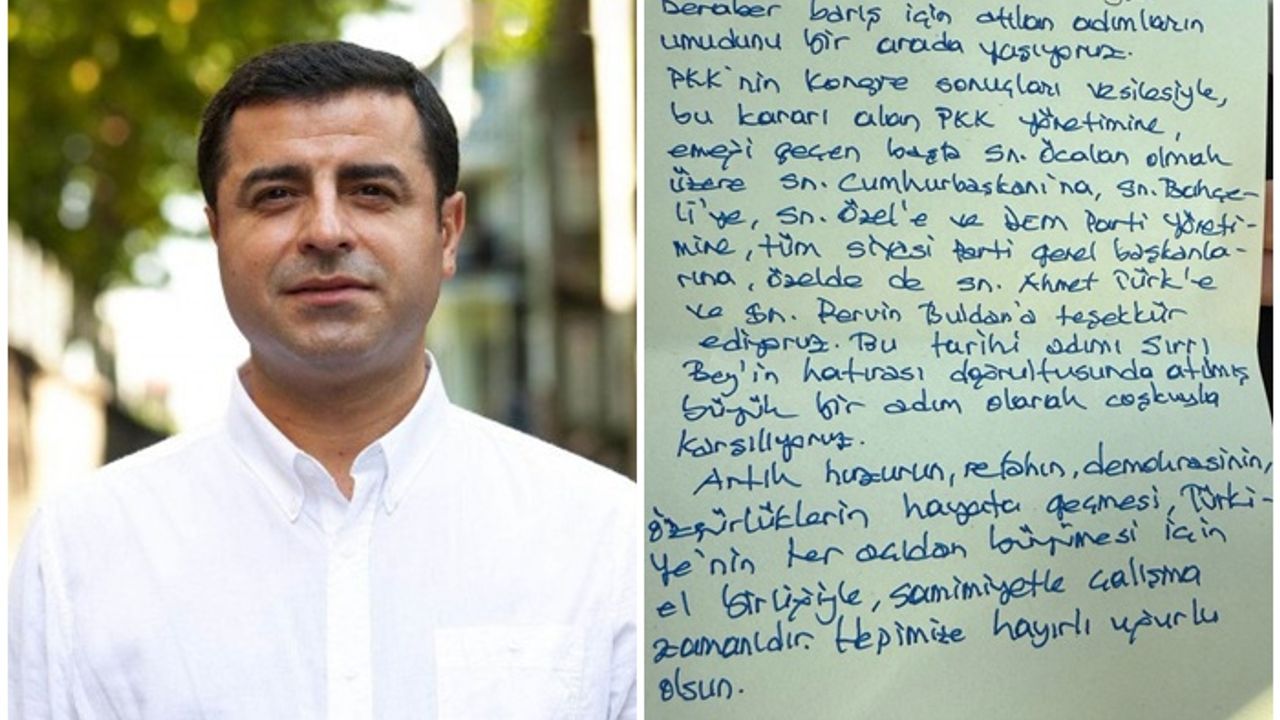 beraber barış için atılan adımların
umudunu bir arada yaşıyoruz.
PKK'nin kongre sonuçları vesilesiyle,
bu kararı alan PKK yönetimine,
emeği geçen başta sn. Öcalan olmak
üzere sn. Cumhurbaşkanı'na, sn. Bahçe-
li'ye, sn. Özel'e ve DEM Parti yöneti-
mine, tüm siyasi parti genel başkanla-
rına, özelde de sn. Ahmet Türk'e
ve sn. Pervin Buldan'a teşekkür
ediyoruz. Bu tarihi adımı Sırrı
Bey'in hatırası dğorultusunda atılmış
büyük bir adım olarak coşkuyla
karşılıyoruz.
Artık huzurun, refahın, demokrasinin,
özgürlüklerin hayata geçmesi, Türki-
ye'nin her açıdan büyümesi için
el birliğiyle, samimiyetle çalışma
zamanıdır. Hepimize hayırlı uğurlu
olsun.